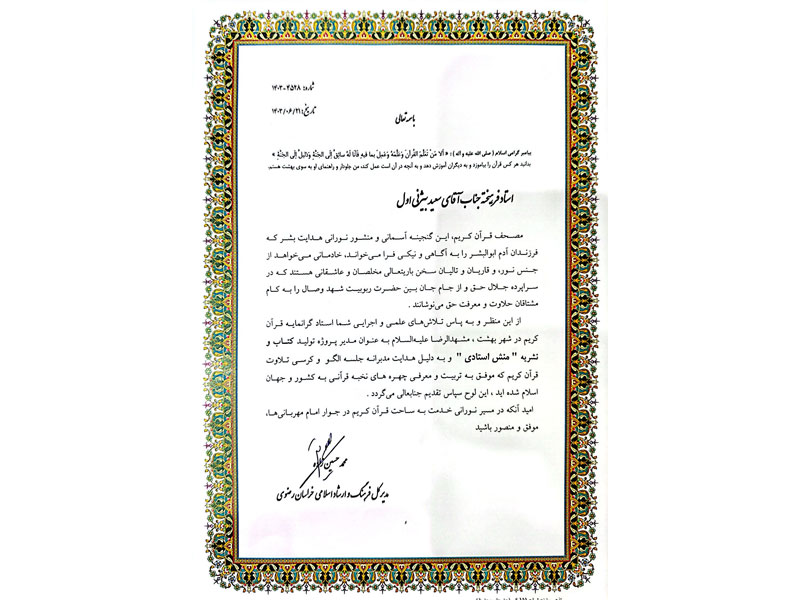 شماره: ۴۵۲۸-۱۴۰۳
تاریخ: ۱۴۰۳/۰۶/۲۱
باسمه تعالی
پیامبر گرامی اسلام ( صلی الله علیه و آله ) : « ألا مَن تَعَلَّمَ القُرآنَ وَعَلَّمَهُ وَعَمِلَ بِما فیهِ فَأنَا لَهُ سائِقٌ إلَی الجَنَّةِ وَدَلیلٌ إلَی الجَنَّةِ »
بدانید هر کس قرآن را بیاموزد و به دیگران آموزش دهد و به آنچه در آن است عمل کند، من جلودار و راهنمای او به سوی بهشت هستم.
استاد فرهیخته جناب آقای سعید بیژنی اول
مصحف قرآن کریم، این گنجینه آسمانی و منشور نورانی هدایت بشر که
فرزندان آدم ابوالبشر را به آگاهی و نیکی فرا می‌خواند، خادمانی می‌خواهد از
جنس نور، و قاریان و تالیان سخن باریتعالی مخلصان و عاشقانی هستند که در
سراپرده جلال حق و از جام جان بین حضرت ربوبیت شهد وصال را به کام
مشتاقان حلاوت و معرفت حق می‌نوشانند .
از این منظر و به پاس تلاش‌های علمی و اجرایی شما استاد گرانمایه قرآن
کریم در شهر بهشت ، مشهدالرضا علیه‌السلام به عنوان مدیر پروژه تولید کتاب و
نشریه " منش استادی " و به دلیل هدایت مدبرانه جلسه الگو و کرسی تلاوت
قرآن کریم که موفق به تربیت و معرفی چهره های نخبه قرآنی به کشور و جهان
اسلام شده اید ، این لوح سپاس تقدیم جنابعالی می‌گردد .
امید آنکه در مسیر نورانی خدمت به ساحت قرآن کریم در جوار امام مهربانی‌ها،
موفق و منصور باشید
محمد حسین
مدیر کل فرهنگ و ارشاد اسلامی خراسان رضوی